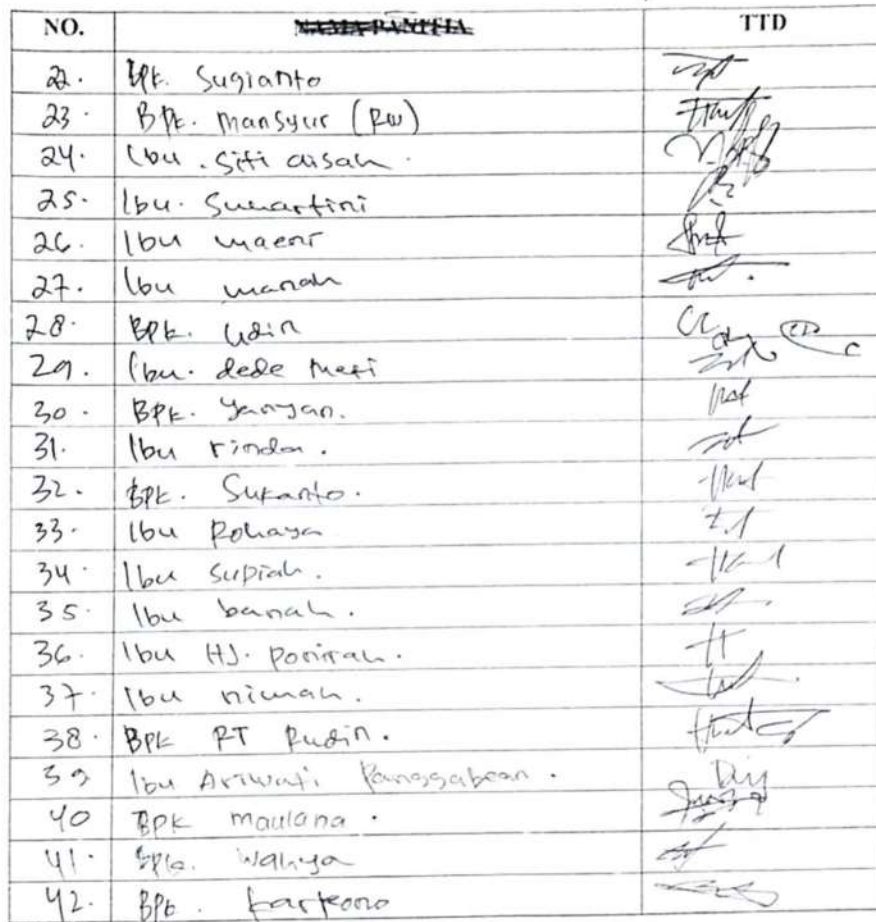 NO. NAMA PANITIA TTD
22. Bpk. Sugianto
23. Bpk. Mansyur (RW)
24. Ibu. Siti aisah.
25. Ibu. Sumartini
26. Ibu maeni
27. Ibu manah
28. Bpk. Udin
29. Ibu. dede
30. Bpk. Yanyan.
31. Ibu rinda.
32. Bpk. Sukanto.
33. Ibu Rohaya
34. Ibu supiah.
35. Ibu banah.
36. Ibu HJ.
37. Ibu nimah.
38. Bpk RT Rudin.
39 Ibu Ariwati Panggabean.
40 Bpk maulana.
41. Bpk. Wahya
42. Bpk.